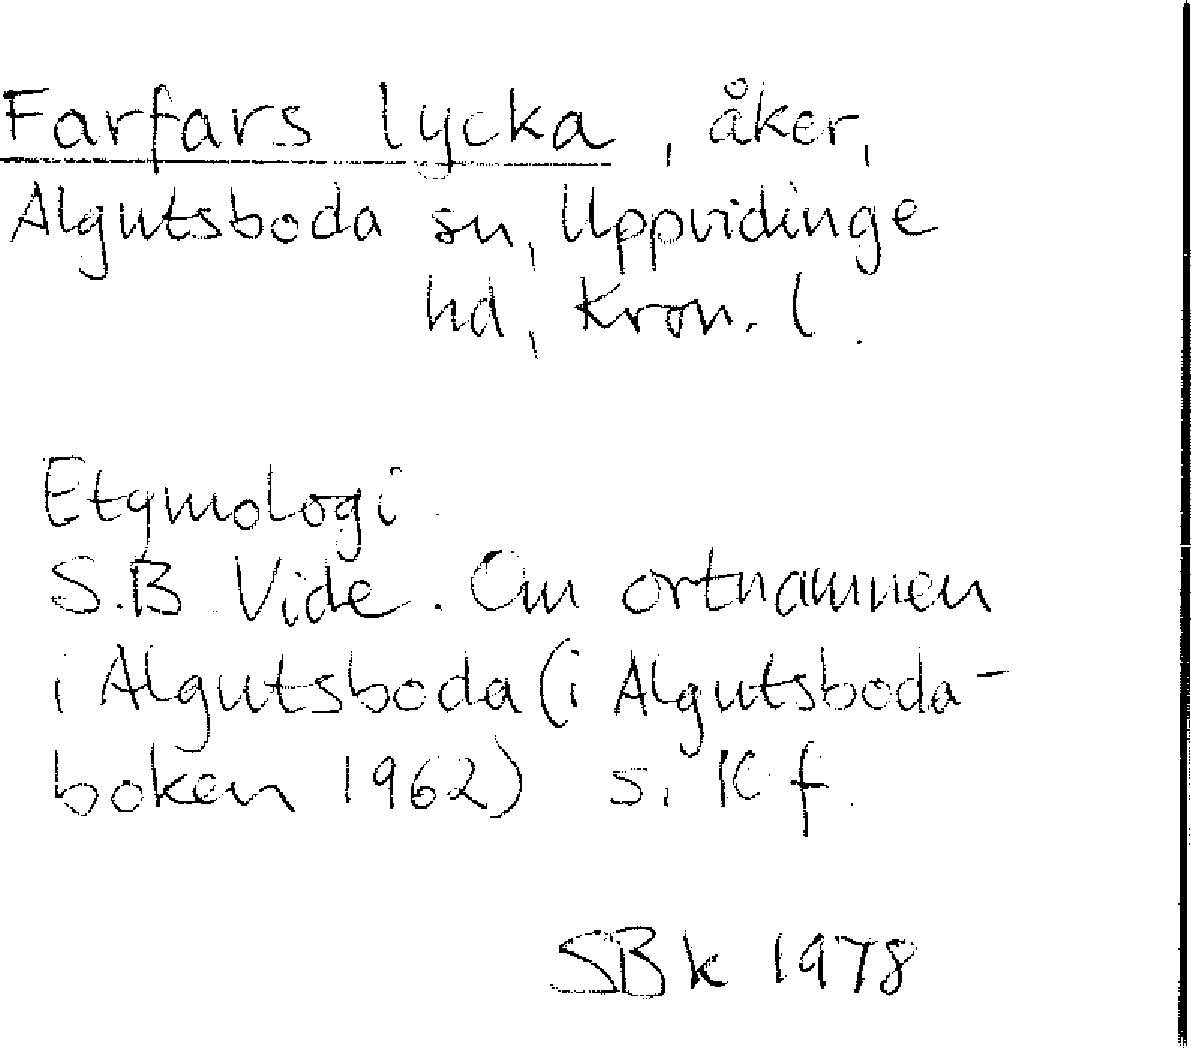 Farfars lycka, åker,
Algutsboda sn, Uppvidinge
hd, Kron. l.
Etymologi
S.B. Vide. Om ortnamnen
i Algutsboda (i Algutsboda-
boken 1962) s. f.
SBk 1978